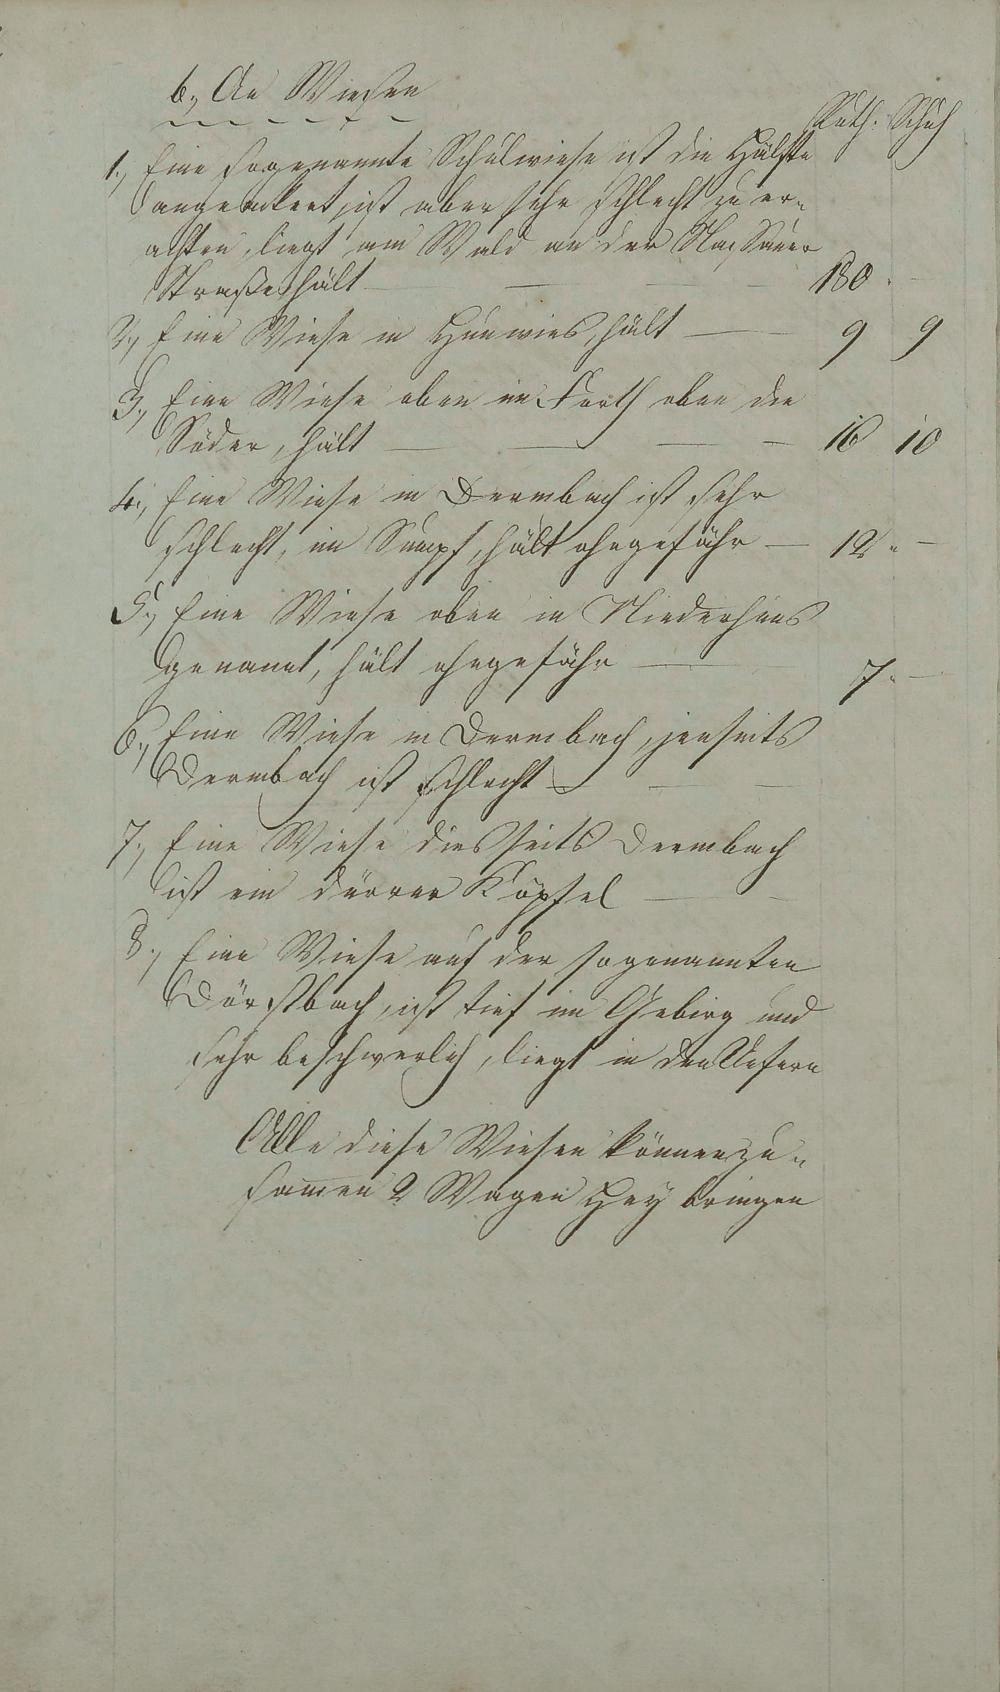 b., An Wiesen
Ruth. Schuh
1., Eine sogenannte Schulwiese ist die Hälfte
angeackert, ist aber sehr schlecht zu er-
achten, liegt am Wald an der Nassauer
Straße, hält — — — 180 . —
2., Eine Wiese in Hunwies, hält — — 9 9
3., Eine Wiese oben im Forth oben die
Söder, hält — — — — 16 10
4., Eine Wiese in Dernbach ist sehr
schlecht, im Sumpf, hält ohngefähr — 12 " —
5., Eine Wiese oben in Niederhaus
genannt, hält ohngefähr — — 7 " —
6., Eine Wiese in Dernbach, jenseits
Dernbach ist schlecht — — —
7., Eine Wiese diesseits Dernbach
ist ein dürrer Köpfel — —
8., Eine Wiese auf der sogenannten
Dörstbach, ist tief im Gebirg und
sehr beschwerlich, liegt in den
Alle diese Wiesen können zu-
samen 2 Wagen Hey bringen